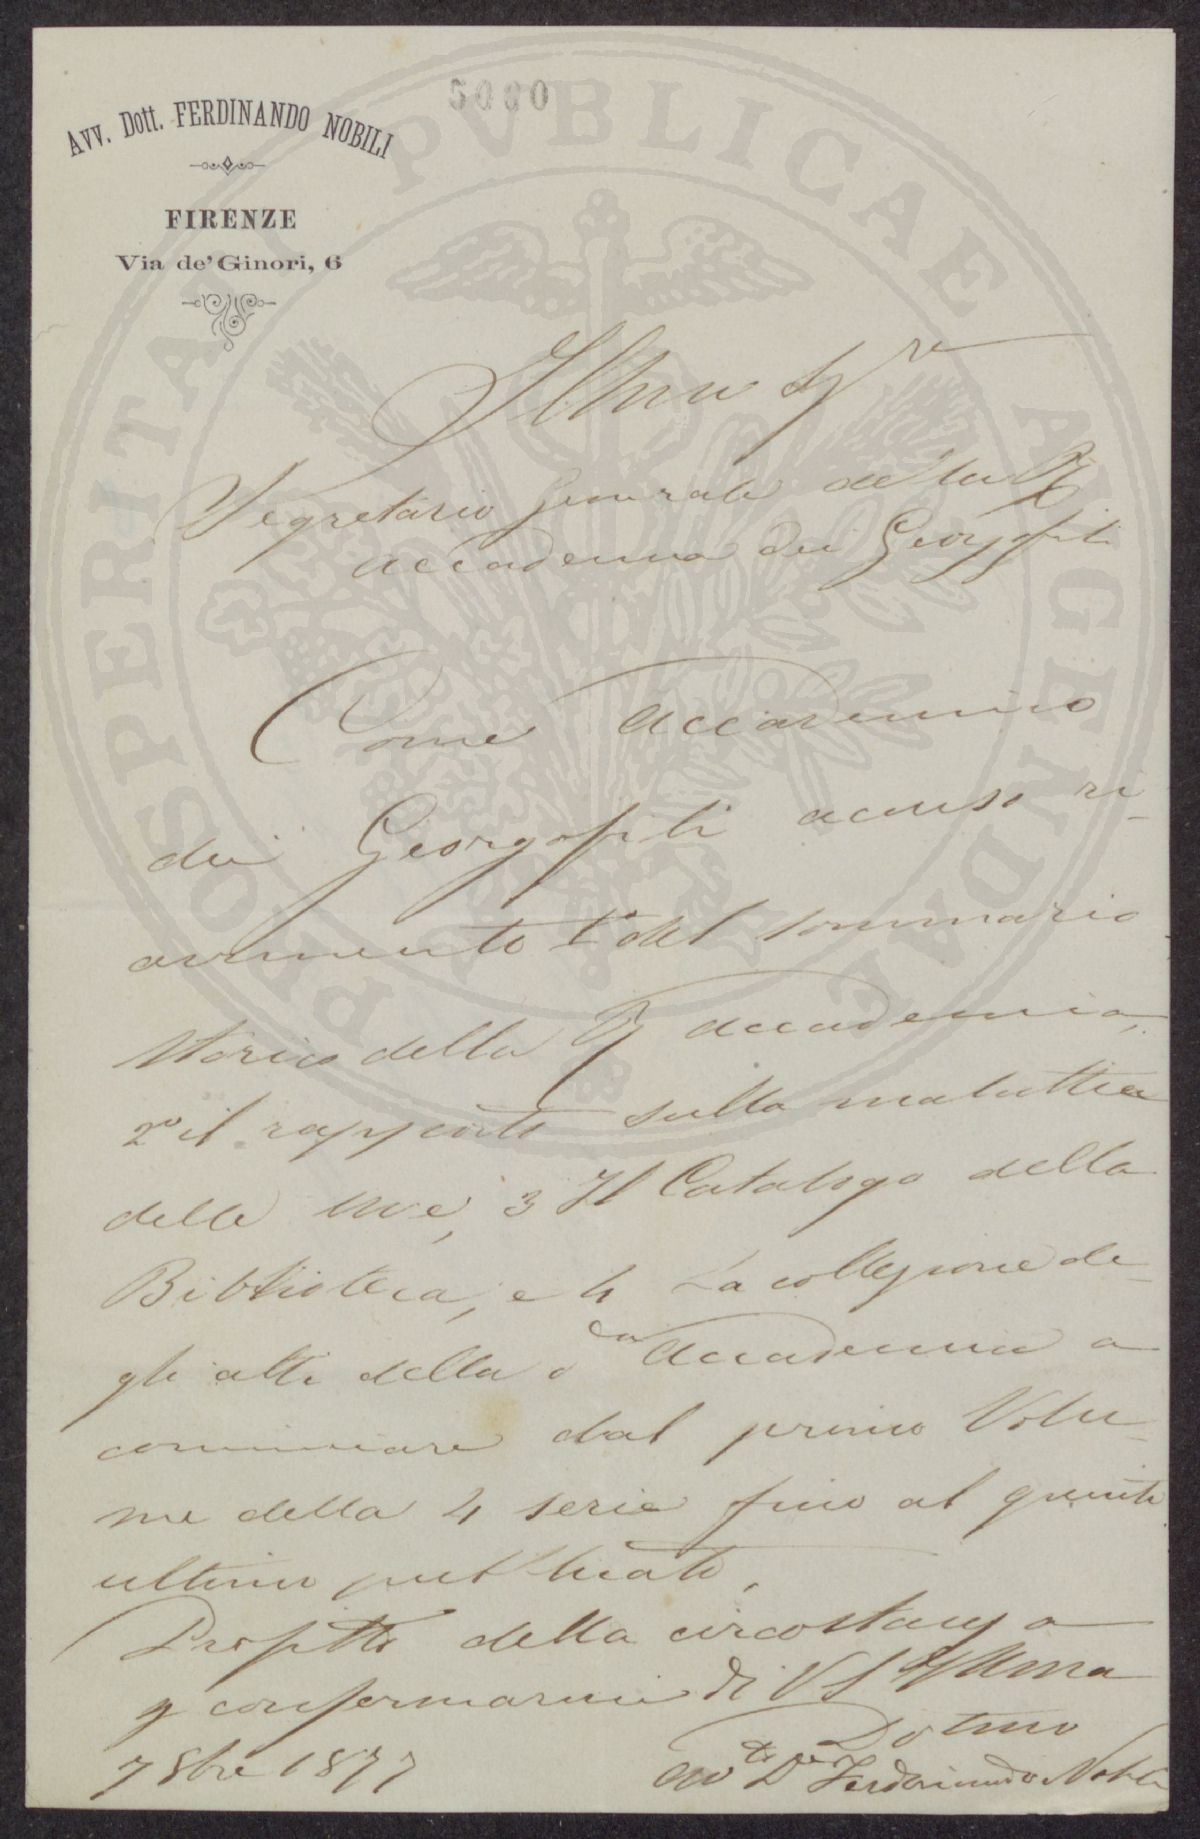 5080
Avv. Dott. FERDINANDO NOBILI
FIRENZE
Via de' Ginori, 6
PROSPERITATI PVBLICAE AVGENDAE
Illmo Sigre
Segretario Generale della R.
Accademia dei Georgofili
Come Accademico
dei Georgofili accuso ri-
cevimento 1° del sommario
storico della R Accademia,
2° il rapporto sulla malattia
delle uve, 3 Il Catalogo della
Biblioteca, e 4 La collezione de-
gli atti della da Accademia a
cominciare dal primo Volu-
me della 4 serie fino al quinto
ultimo pubblicato,
Profitto della circostanza
p confermarmi Di VS Illma
Dvtmo
Avvto Dre Ferdinando Nobili
7 8bre 1877